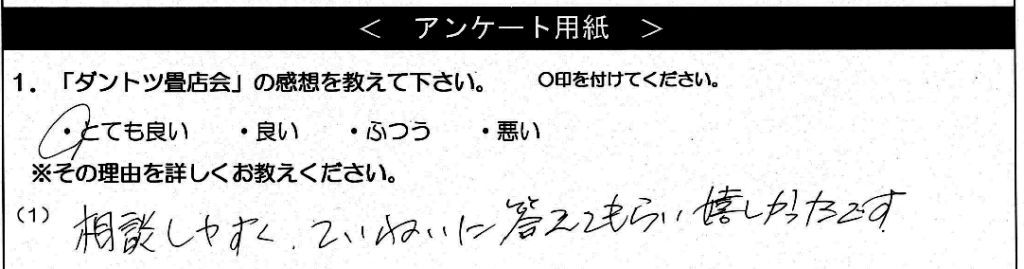 ＜ アンケート用紙 ＞
1. 「ダントツ畳店会」の感想を教えて下さい。 〇印を付けてください。
・とても良い ・良い ・ふつう ・悪い
※その理由を詳しくお教えください。
(1) 相談しやすく、ていねいに答えてもらい嬉しかったです